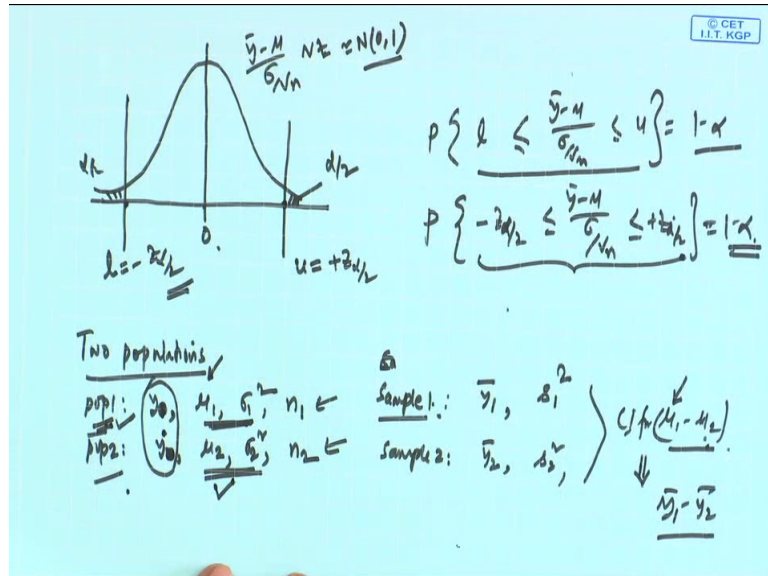 © CET
I.I.T. KGP
ȳ-μ / σ/√n ~ z = N(0,1)
α/2
α/2
0
l = -z_{α/2}
u = +z_{α/2}
P{ l ≤ ȳ-μ / σ/√n ≤ u } = 1-α
P{ -z_{α/2} ≤ ȳ-μ / σ/√n ≤ +z_{α/2} } = 1-α.
Two populations
pop1: y, μ₁, σ₁², n₁ ←
pop2: y, μ₂, σ₂², n₂ ←
Sample 1: ȳ₁, s₁²
Sample 2: ȳ₂, s₂²,
CI for (μ₁-μ₂)
⇓
ȳ₁-ȳ₂